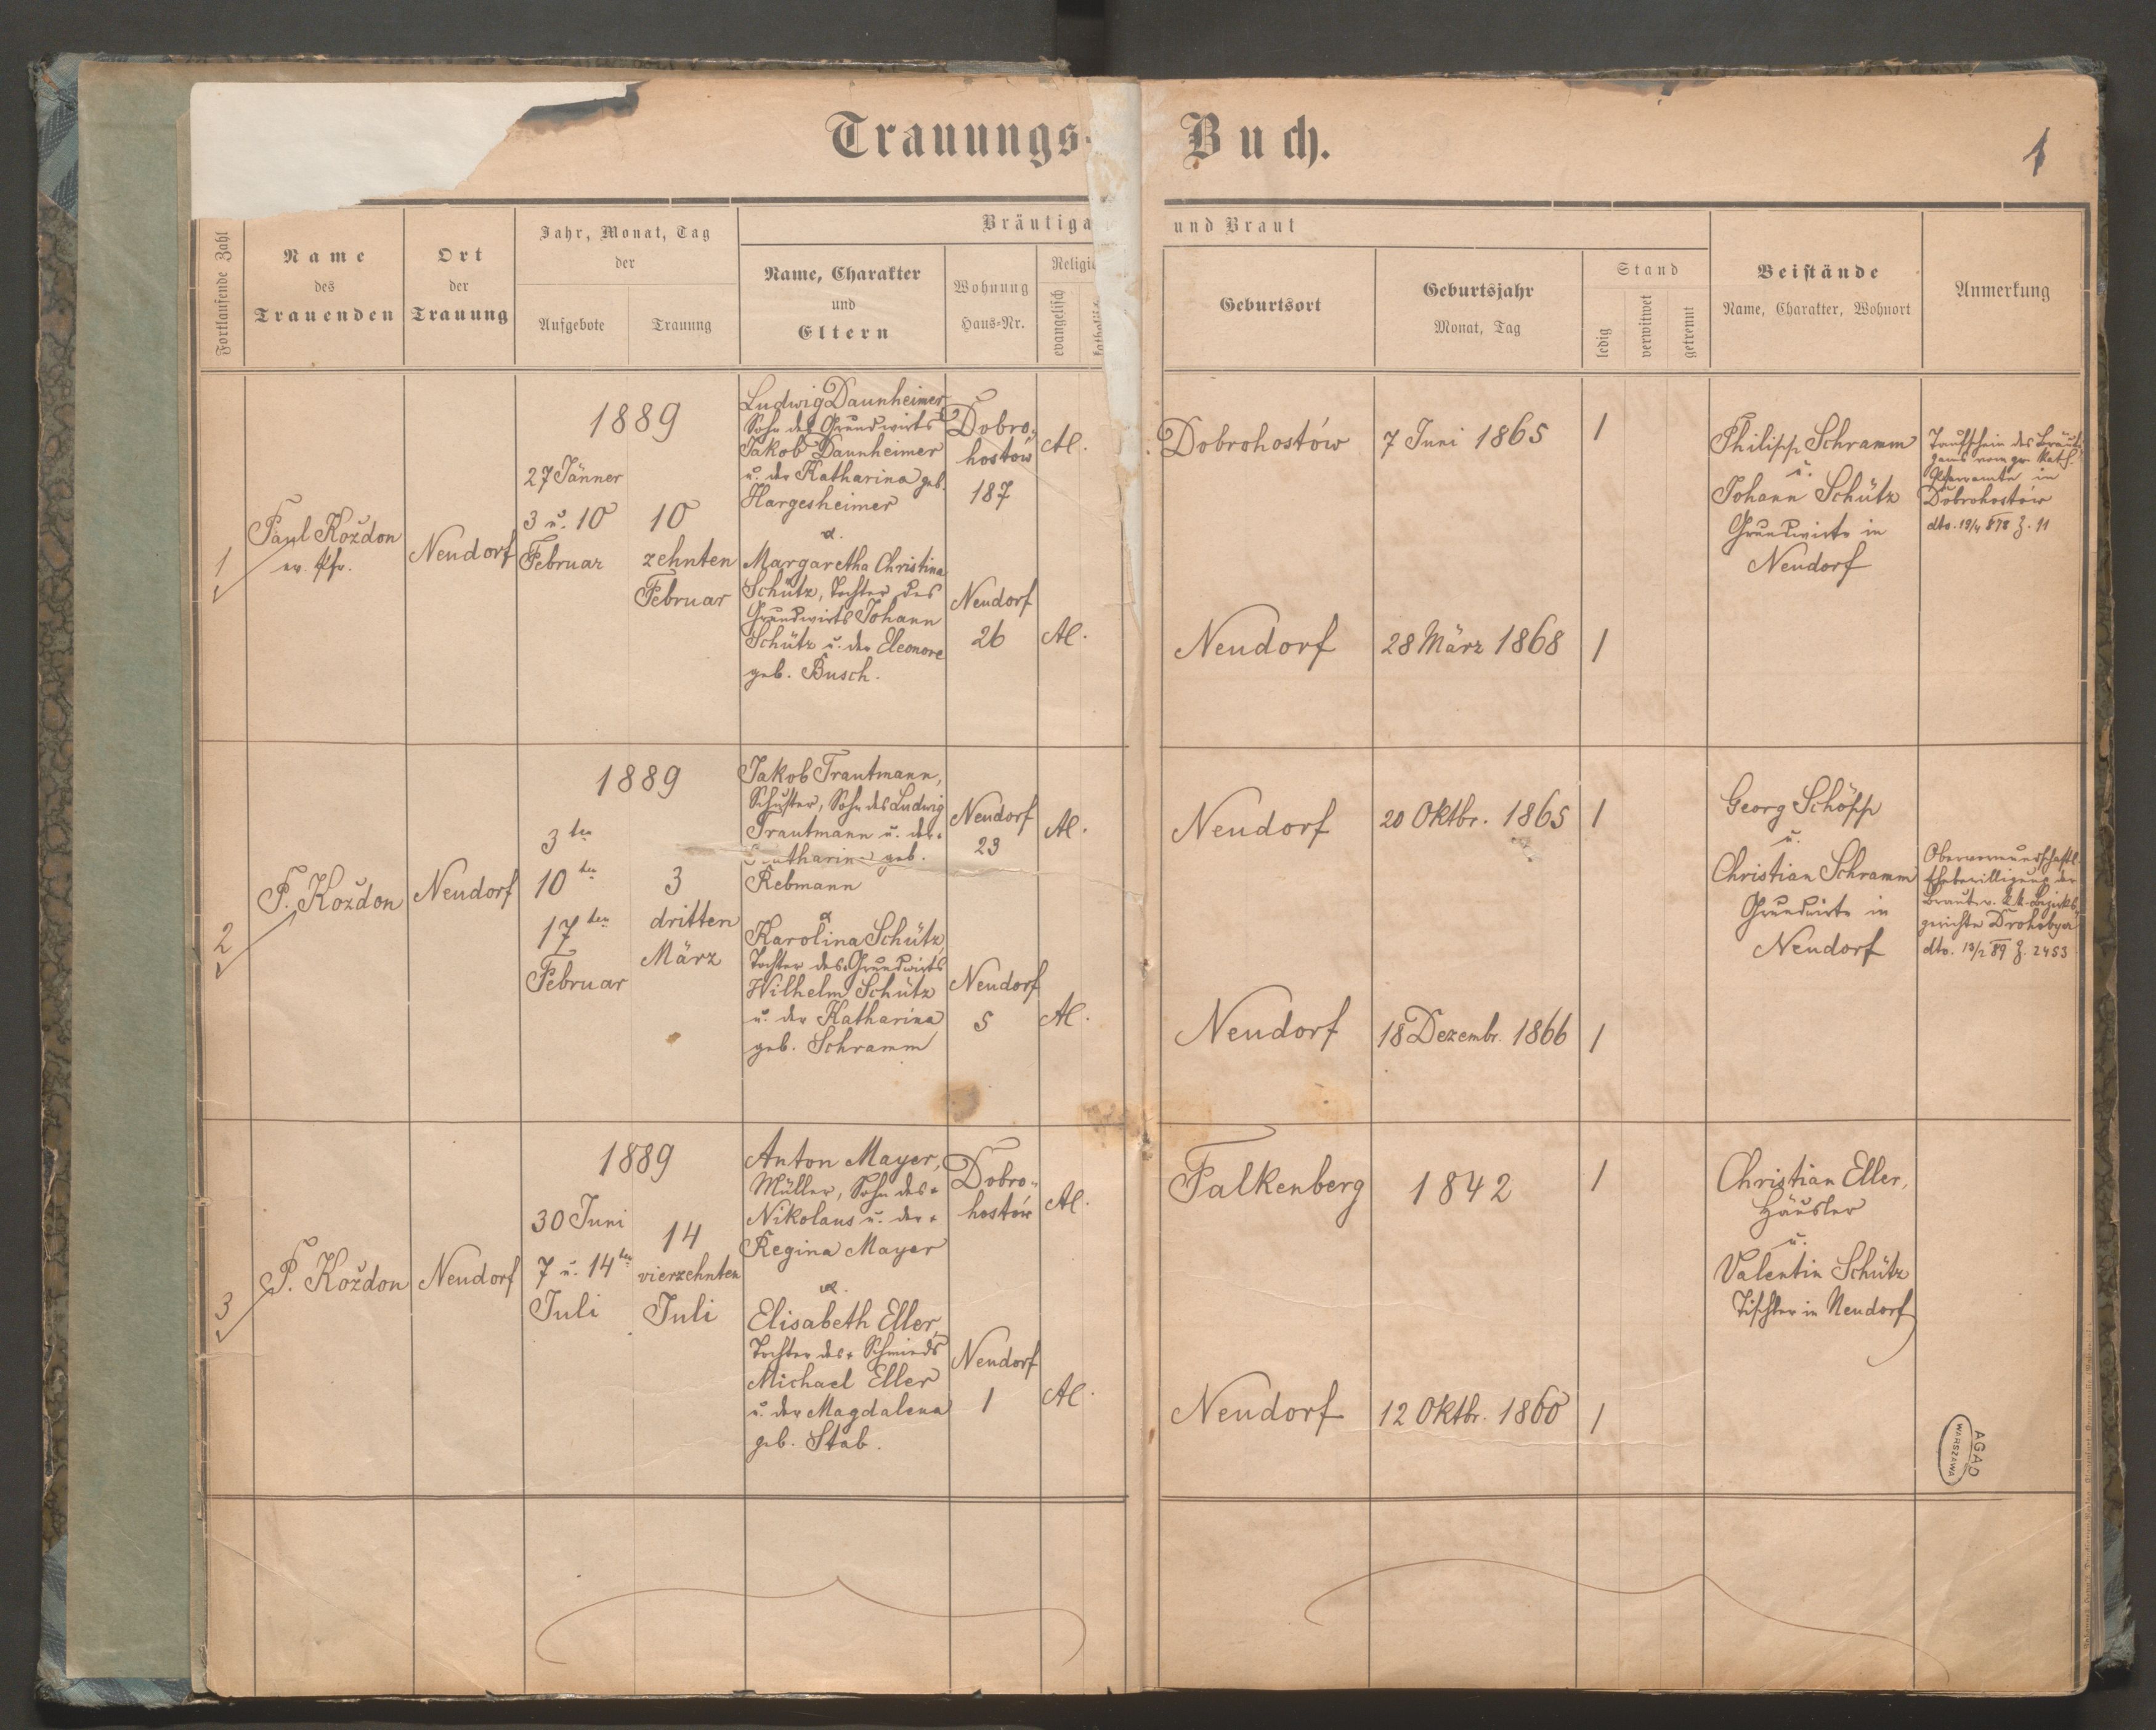 Trauungs-Buch.
1
Fortlaufende Zahl
Name
des
Trauenden
Ort
der
Trauung
Jahr, Monat, Tag
der
Aufgebote
Trauung
Bräutiga
und Braut
Name, Charakter
und
Eltern
Wohnung
Haus-Nr.
Religi
evangelisch
Geburtsort
Geburtsjahr
Monat, Tag
Stand
ledig
verwitwet
getrennt
Beistände
Name, Charakter, Wohnort
Anmerkung
1
Paul Kożdon
ev. Pfr.
Neudorf
1889
27 Jänner
3 u. 10
Februar
10
zehnten
Februar
Ludwig Daunheimer
Sohn des Grundwirts
Jakob Daunheimer
u. der Katharina geb.
Hargesheimer
u.
Margaretha Christina
Schütz, Tochter des
Grundwirts Johann
Schütz u. der Eleonore
geb. Busch.
Dobro-
hostów
187
Neudorf
26
AC.
AC.
Dobrohostów
7 Juni 1865
1
Neudorf
28 März 1868
1
Philipp Schramm
u.
Johann Schütz
Grundwirte in
Neudorf
Taufschein des Bräuti-
gams vom gr. Kath.
Pfarramte in
Dobrohostów
dto. 19/4 878 Z. 11
2
P. Kożdon
Neudorf
1889
3 ten
10 ten
17 ten
Februar
3
dritten
März
Jakob Trautmann,
Schuster, Sohn des Ludwig
Trautmann u. der
Katharina geb.
Rebmann
u.
Karolina Schütz,
Tochter des Grundwirts
Wilhelm Schütz
u. der Katharina
geb. Schramm
Neudorf
23
Neudorf
5
AC.
AC.
Neudorf
20 Oktbr. 1865
1
Neudorf
18 Dezembr. 1866
1
Georg Schöpp
u.
Christian Schramm
Grundwirte in
Neudorf
Obervormundschaftl.
Ehebewilligung der
Braut v. k.k. Bezirks-
gerichte Drohobycz
dto. 13/2 89 Z. 2453
3
P. Kożdon
Neudorf
1889
30 Juni
7 u. 14 ten
Juli
14
vierzehnten
Juli
Anton Mayer,
Müller, Sohn des
Nikolaus u. der
Regina Mayer
u.
Elisabeth Eller,
Tochter des Schmieds
Michael Eller
u. der Magdalena
geb. Stab.
Dobro-
hostów
Neudorf
1
AC.
AC.
Falkenberg
1842
1
Neudorf
12 Oktbr. 1860
1
Christian Eller,
Häusler
u.
Valentin Schütz
Tischler in Neudorf
AGAD
WARSZAWA